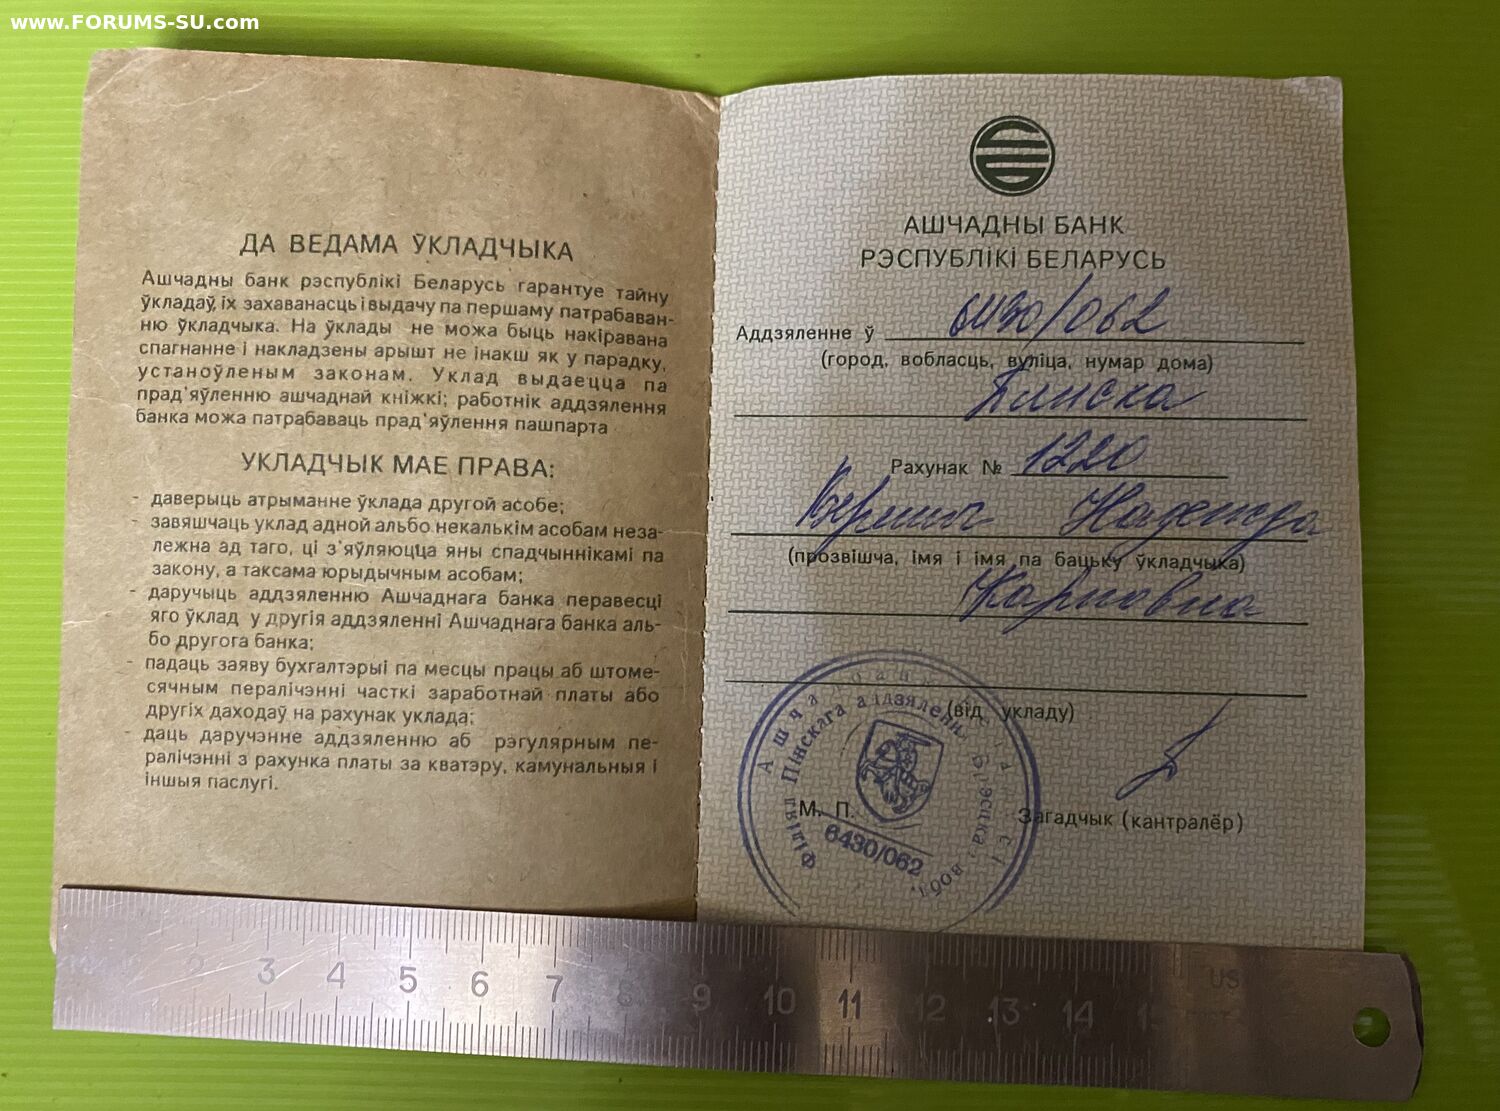 www.FORUMS-SU.com
ДА ВЕДАМА ЎКЛАДЧЫКА
Ашчадны банк рэспублікі Беларусь гарантуе тайну
ўкладаў, іх захаванасць і выдачу па першаму патрабаван-
ню ўкладчыка. На ўклады не можа быць накіравана
спагнанне і накладзены арышт не інакш як у парадку,
устаноўленым законам. Уклад выдаецца па
прад'яўленню ашчаднай кніжкі; работнік аддзялення
банка можа патрабаваць прад'яўлення пашпарта
УКЛАДЧЫК МАЕ ПРАВА:
- даверыць атрыманне ўклада другой асобе;
- завяшчаць уклад адной альбо некалькім асобам неза-
лежна ад таго, ці з'яўляюцца яны спадчыннікамі па
закону, а таксама юрыдычным асобам;
- даручыць аддзяленню Ашчаднага банка перавесці
яго ўклад у другія аддзяленні Ашчаднага банка аль-
бо другога банка;
- падаць заяву бухгалтэрыі па месцы працы аб штоме-
сячным пералічэнні часткі заработнай платы або
другіх даходаў на рахунак уклада;
- даць даручэнне аддзяленню аб рэгулярным пе-
ралічэнні з рахунка платы за кватэру, камунальныя і
іншыя паслугі.
АШЧАДНЫ БАНК
РЭСПУБЛІКІ БЕЛАРУСЬ
Аддзяленне ў 6430/062
(город, вобласць, вуліца, нумар дома)
Пинска
Рахунак № 1220
Надежда
(прозвішча, імя і імя па бацьку ўкладчыка)
Карповна
(від укладу)
М. П.
Загадчык (кантралёр)
Філіял Пінскага аддзялення
6430/062
3 4 5 6 7 8 9 10 11 12 13 14 15
US